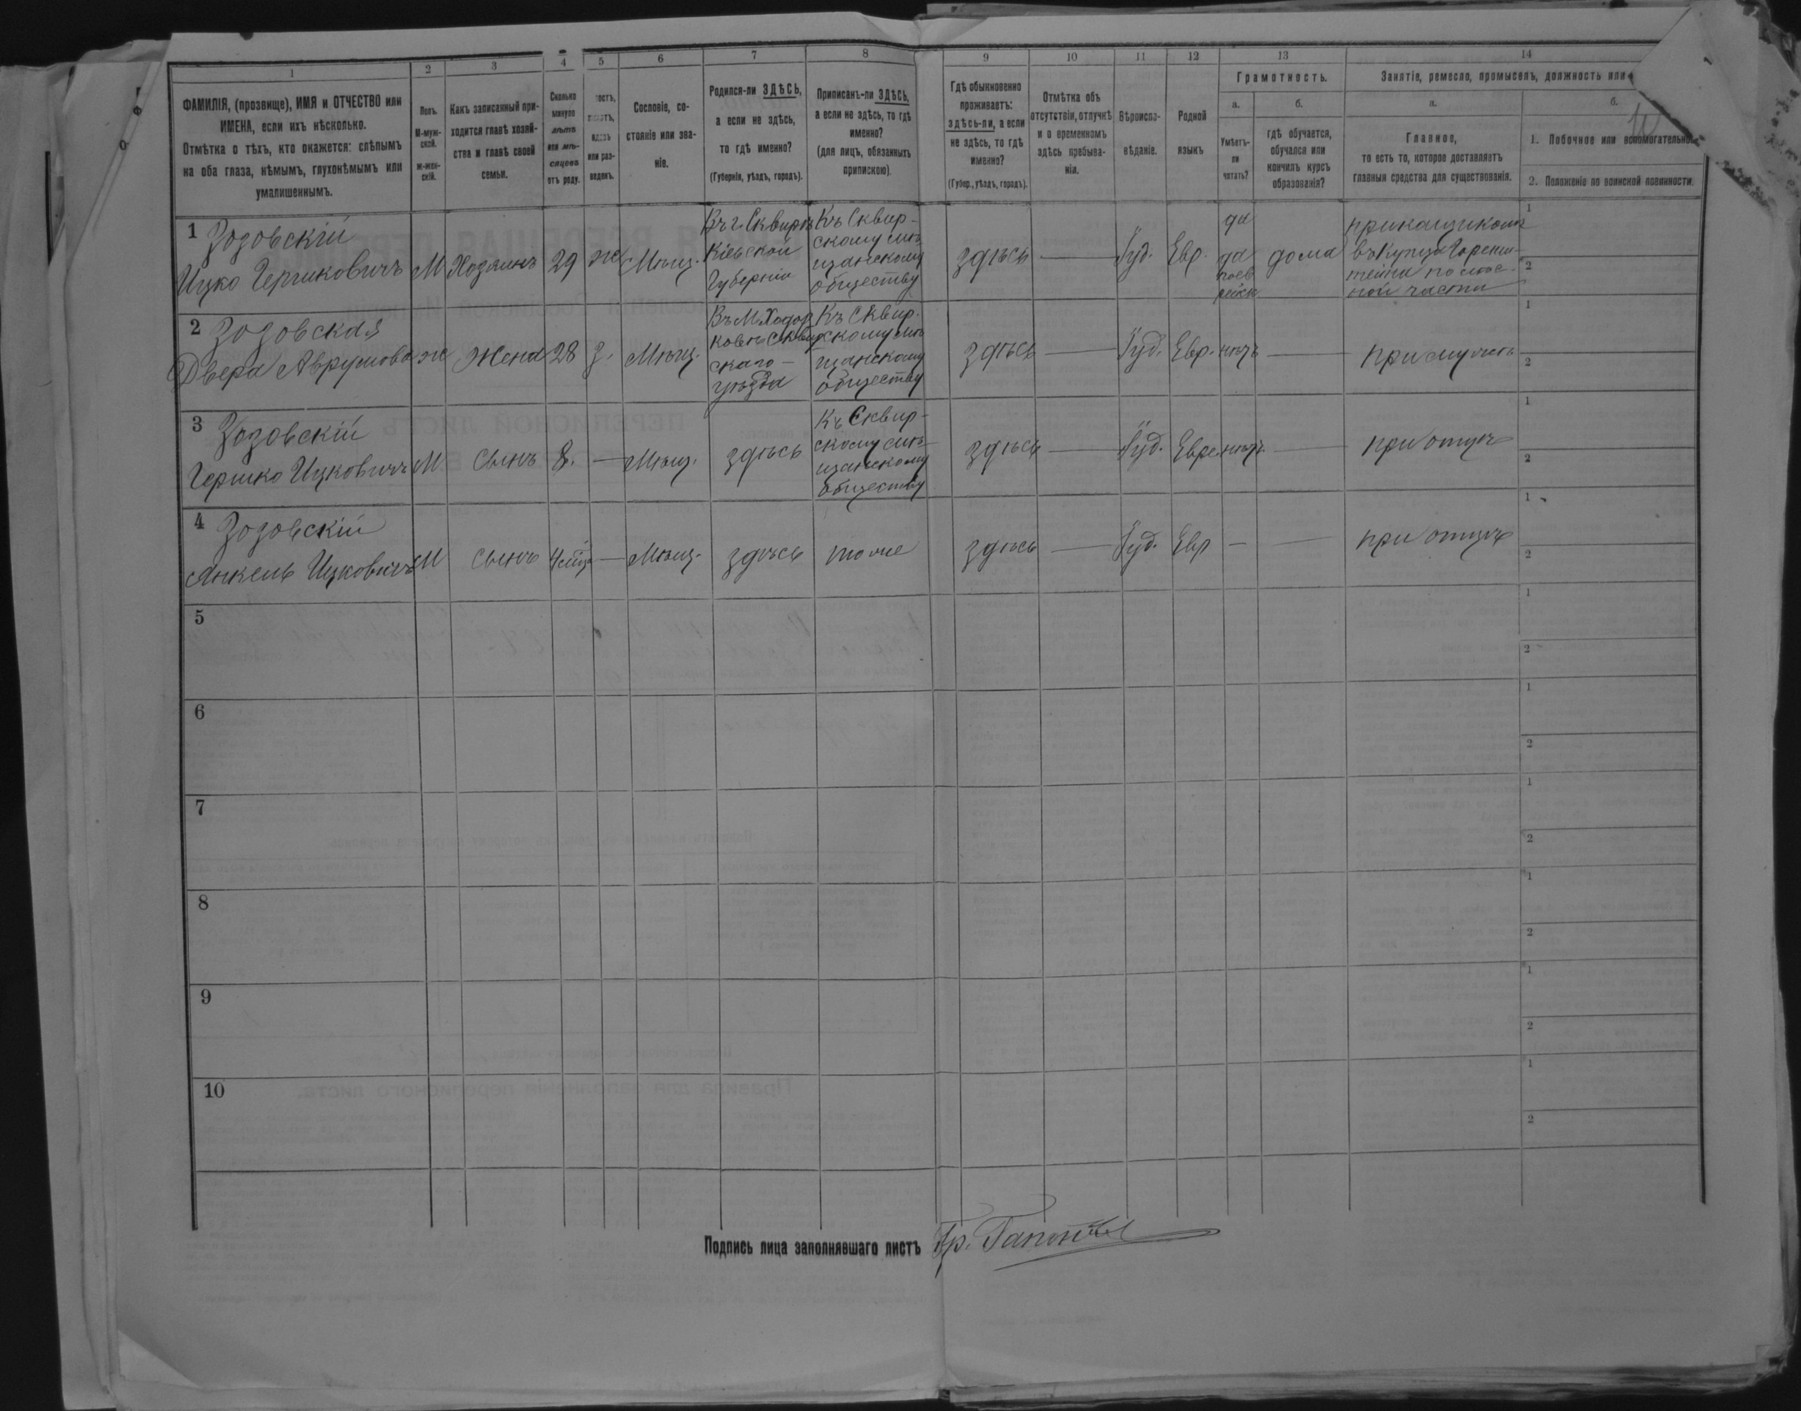 1 2 3 4 5 6 7 8 9 10 11 12 13 14
ФАМИЛІЯ, (прозвище), ИМЯ и ОТЧЕСТВО или
ИМЕНА, если ихъ нѣсколько.
Отмѣтка о тѣхъ, кто окажется: слѣпымъ
на оба глаза, нѣмымъ, глухонѣмымъ или
умалишеннымъ.
Полъ.
М-муж-
ской.
ж-жен-
скій.
Какъ записанный при-
ходится главѣ хозяй-
ства и главѣ своей
семьи.
Сколько
минуло
лѣтъ
или мѣ-
сяцевъ
отъ роду.
или раз-
веденъ.
Сословіе, со-
стояніе или зва-
ніе.
Родился-ли ЗДѢСЬ,
а если не здѣсь,
то гдѣ именно?
(Губернія, уѣздъ, городъ).
Приписанъ-ли ЗДѢСЬ,
а если не здѣсь, то гдѣ
именно?
(для лицъ, обязанныхъ
припискою).
Гдѣ обыкновенно
проживаетъ:
здѣсь-ли, а если
не здѣсь, то гдѣ
именно?
(Губер., уѣздъ, городъ).
Отмѣтка объ
отсутствіи, отлучкѣ
и о временномъ
здѣсь пребыва-
ніи.
Вѣроиспо-
вѣданіе.
Родной
языкъ
Грамотность.
а.
Умѣетъ-
ли
читать?
б.
гдѣ обучается,
обучался или
кончилъ курсъ
образованія?
Занятіе, ремесло, промыселъ, должность или
а.
Главное,
то есть то, которое доставляетъ
главныя средства для существованія.
б.
1. Побочное или вспомогательное
2. Положеніе по воинской повинности.
1 Зозовскій
Ицко Гершковичъ
М
Хозяинъ
29
ж
Мѣщ.
Въ г. Сквирѣ
Кіевской
Губерніи
Къ Сквир-
скому мѣ-
щанскому
обществу
здѣсь
—
Іуд.
Евр.
да
да
поев
рейск
дома
прикащикомъ
въ Купца
части
1
2
2 Зозовская
Двера Аврумова
ж
Жена
28
з.
Мѣщ.
Въ М. Ходор
ковѣ Сквир
скаго
уѣзда
Къ Сквир-
скому мѣ
щанскому
обществу
здѣсь
—
Іуд.
Евр.
нѣтъ
—
при мужѣ
1
2
3 Зозовскій
Гершко Ицковичъ
М
сынъ
8.
—
Мѣщ.
здѣсь
Къ Сквир-
скому мѣ-
щанскому
обществу
здѣсь
—
Іуд.
Евре
нѣтъ
—
при отцѣ
1
2
4 Зозовскій
Янкель Ицковичъ
М
сынъ
4 мѣс
—
Мѣщ.
здѣсь
тоже
здѣсь
—
Іуд.
Евр
—
—
при отцѣ
1
2
5
1
2
6
1
2
7
1
2
8
1
2
9
1
2
10
1
2
Подпись лица заполнявшаго листъ Гр.